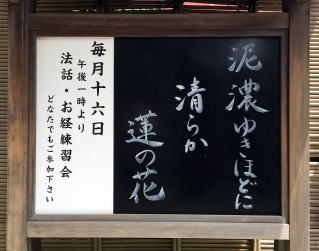 泥濃ゆきほどに
清らか
蓮の花
毎月十六日
午後一時より
法話・お経練習会
どなたでもご参加下さい